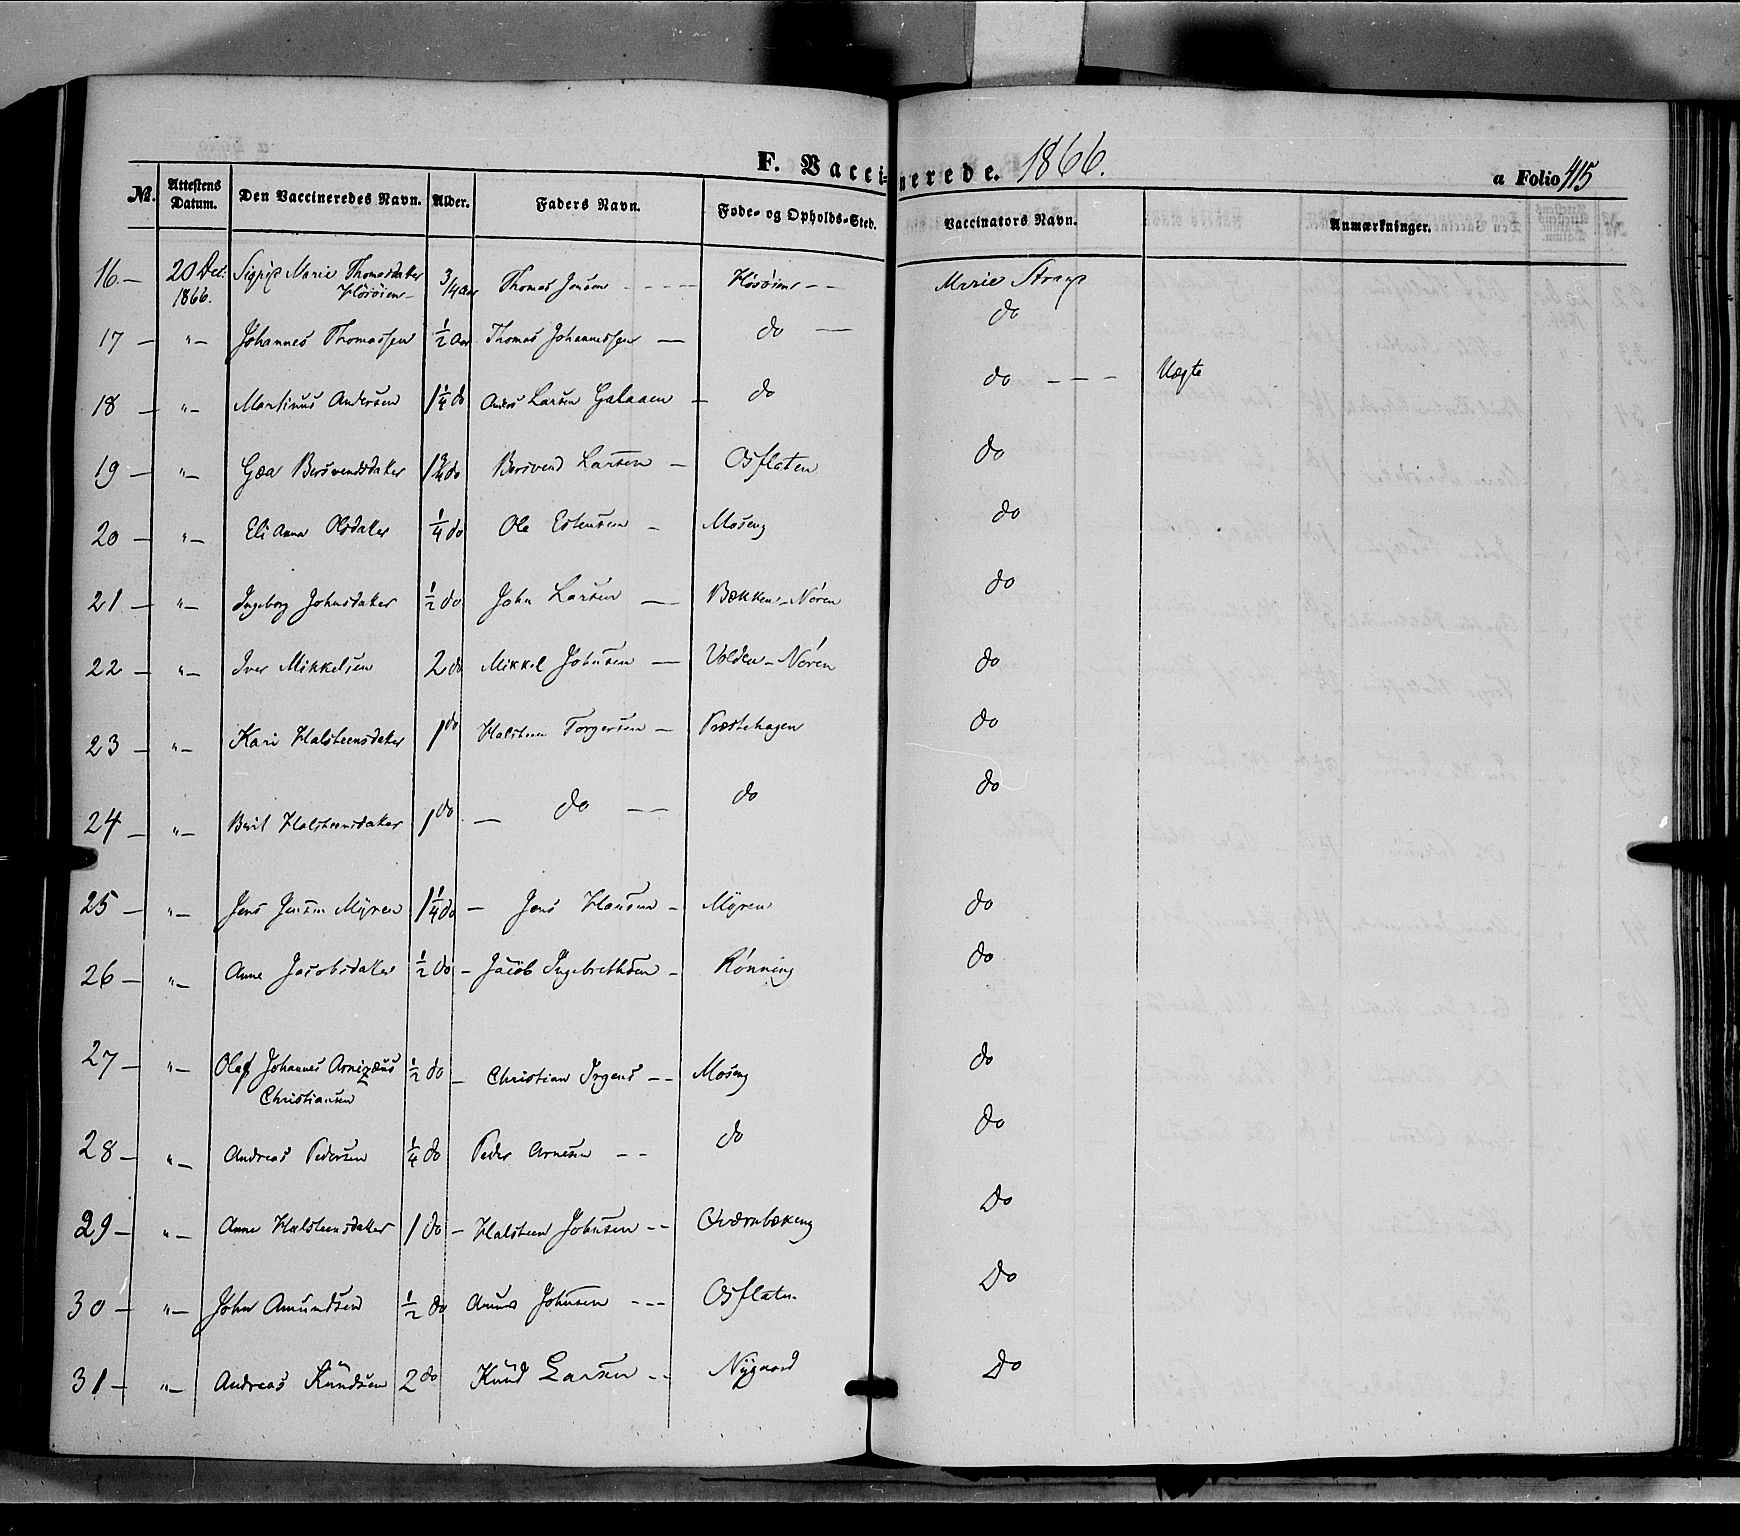 F. Vaccinerede. 1866.
a Folio 415
№. Attestens Datum. Den Vaccineredes Navn. Alder. Faders Navn. Føde- og Opholds-Sted. Vaccinators Navn. Anmærkninger.
16 — 20 Dec: 1866. Marie Thomasdater 3/4 aar Thomas Jensen - - - - Marie
17 — "— Johannes Thomassen 1/2 aar Thomas Johannessen — do — do
18 — "— Martinus Andersen 1 1/4 do Anders Larsen Galaaen — do do - - - Uægte
19 — "— Gœa Bersvendsdater do Bersvend Larsen — Osflaten do
20 — "— Eli Anna Olsdater 1/4 do Ole Estensen — Moseng do
21 — "— Ingeborg Johnsdater 1/2 do John Larsen — Bækken-Nøren do
22 — "— Iver Mikkelsen 2 do Mikkel Johnsen — Volden-Nøren do
23 — "— Kari Halsteensdater 1 do Halsteen Torgersen — Præstehagen do
24 — "— Berit Halsteensdater 1 do — do — — do do
25 — "— Jens Jensen Myren 1 1/4 do — Jens Hansen — Myren do
26 — "— Anne Jacobsdater 1/2 do — Jacob Ingebrethsen — Rønning do
27 — "— Olaf Johannes Christiansen 1/2 do — Christian Irgens - - Moseng do
28 — "— Andreas Pedersen 1/4 do Peder Arnesen - - do do
29 — "— Anne Halsteensdater 1 do — Halsteen Johnsen - - Qværnbækeng do
30 — "— John Amundsen 1/2 do Johnsen - - - Osflaten Do
31 — "— Andreas Knudsen 2 do Knud Larsen - - Nygaard Do